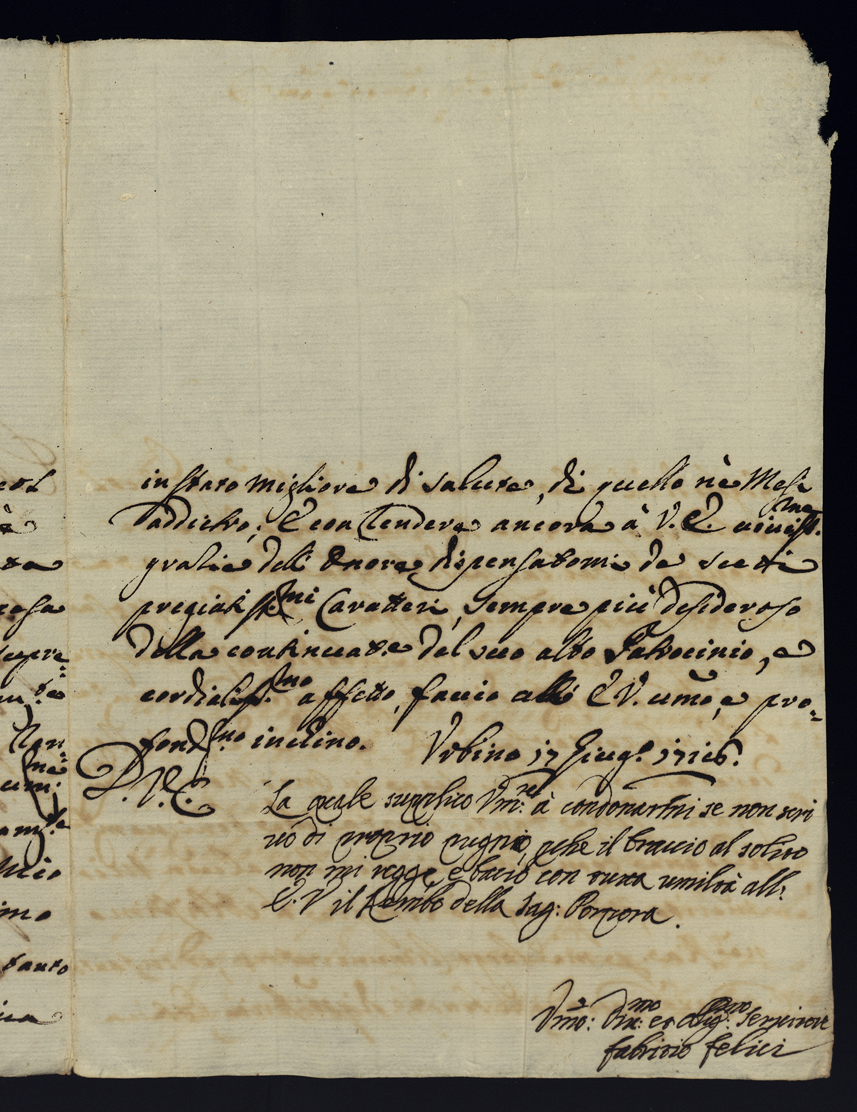 in stato migliore di salute, di quello ne Mesi
addietro; E con rendere ancora à V. E. vivissme.
gratie dell'Onore dispensatomi de suoi
pregiatissmi Caratteri, sempre più desideroso
della continuata del suo alto Patrocinio, e
cordialissmo affetto, faccio all' E V. umo, e pro=
fondmo inclino. Urbino 17 Giugo 1716.
D. V. E. La quale supplico Vmte à condonarmi se non scri
vo di proprio pugno, che il braccio al solito
non mi regge, e bacio con tutta umiltà all'
E. V il Lembo della Sag: Porpora.
Vmo: Dmo: et Obligmo Servitore
fabritio felici
tanto